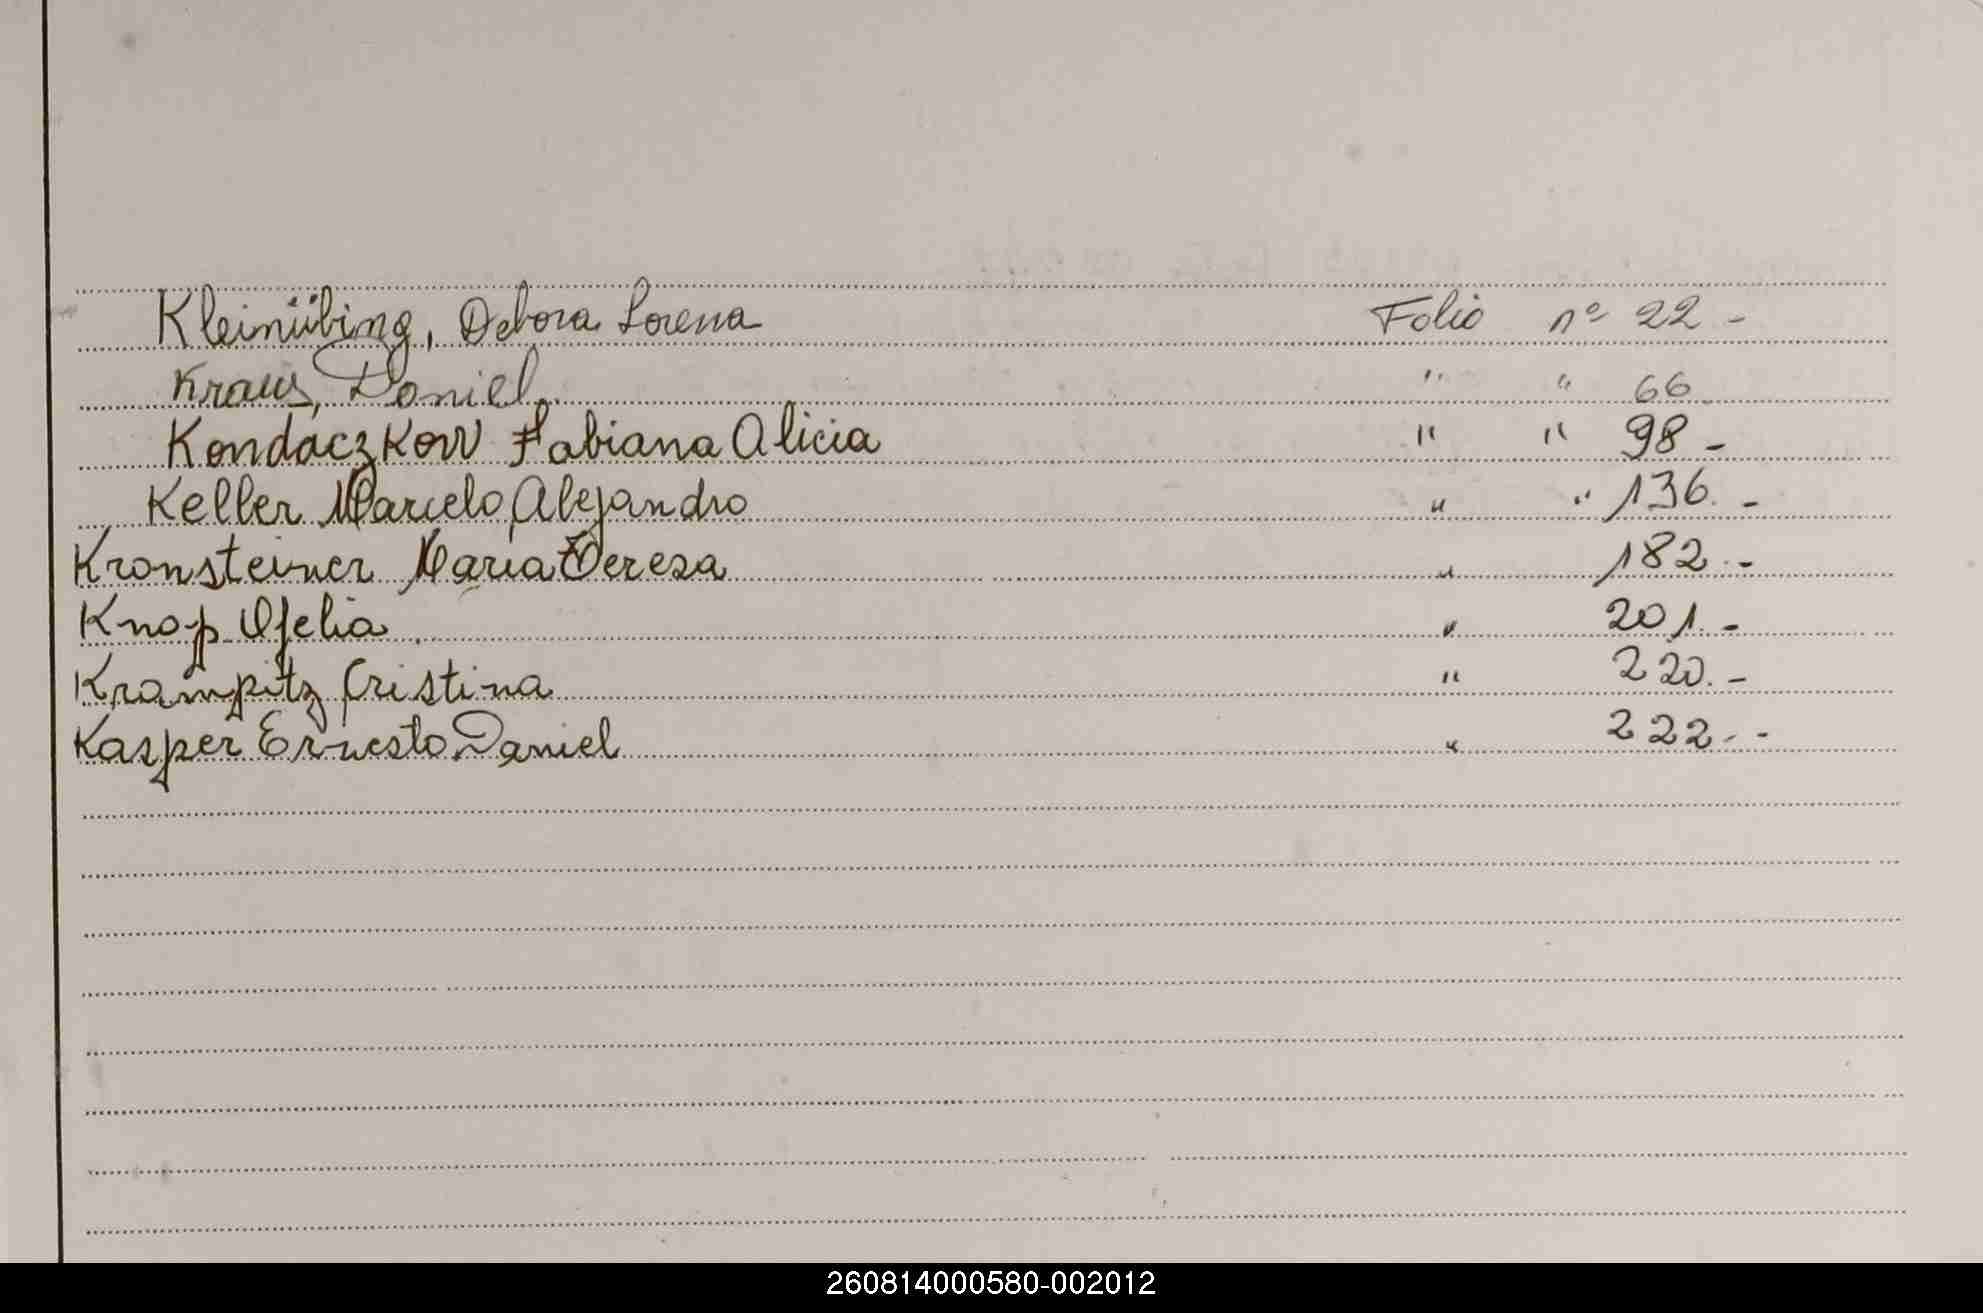 Kleinübing, Debora Lorena Folio nº 22 -
Kraus, Daniel " " 66 -
Kondaczkow Fabiana Alicia " " 98 -
Keller Marcelo Alejandro " " 136. -
Kronsteiner María Tereza " 182. -
Knop Ofelia " 201. -
Krampitz Cristina " 220. -
Kasper Ernesto Daniel " 222. -
260814000580-002012